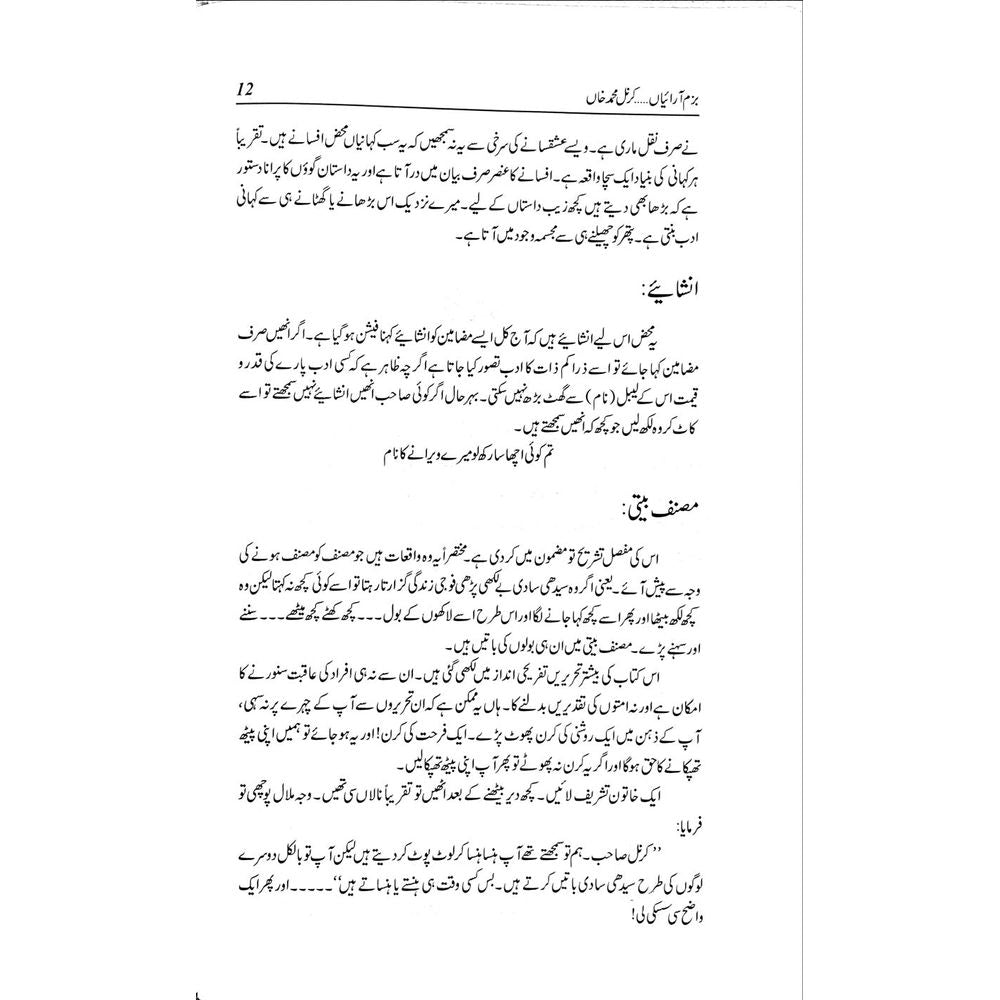 بزم آرائیاں.....کرنل محمد خاں 12
نے صرف نقل ماری ہے۔ ویسے عشقسانے کی سرخی سے یہ نہ سمجھیں کہ یہ سب کہانیاں محض افسانے ہیں۔ تقریباً
ہر کہانی کی بنیاد ایک سچا واقعہ ہے۔ افسانے کا عنصر صرف بیان میں در آتا ہے اور یہ داستان گوؤں کا پرانا دستور
ہے کہ بڑھا بھی دیتے ہیں کچھ زیب داستاں کے لیے۔ میرے نزدیک اس بڑھانے یا گھٹانے ہی سے کہانی
ادب بنتی ہے۔ پتھر کو چھیلنے ہی سے مجسمہ وجود میں آتا ہے۔
انشائیے:
یہ محض اس لیے انشائیے ہیں کہ آج کل ایسے مضامین کو انشائیے کہنا فیشن ہو گیا ہے۔ اگر انھیں صرف
مضامین کہا جائے تو اسے ذرا کم ذات کا ادب تصور کیا جاتا ہے اگرچہ ظاہر ہے کہ کسی ادب پارے کی قدر و
قیمت اس کے لیبل (نام) سے گھٹ بڑھ نہیں سکتی۔ بہر حال اگر کوئی صاحب انھیں انشائیے نہیں سمجھتے تو اسے
کاٹ کر وہ لکھ لیں جو کچھ کہ انھیں سمجھتے ہیں۔
تم کوئی اچھا سا رکھ لو میرے ویرانے کا نام
مصنف بیتی:
اس کی مفصل تشریح تو مضمون میں کر دی ہے۔ مختصراً یہ وہ واقعات ہیں جو مصنف کو مصنف ہونے کی
وجہ سے پیش آئے۔ یعنی اگر وہ سیدھی سادی بے لکھی پڑھی فوجی زندگی گزارتا رہتا تو اسے کوئی کچھ نہ کہتا لیکن وہ
کچھ لکھ بیٹھا اور پھر اسے کچھ کہا جانے لگا اور اس طرح اسے لاکھوں کے بول ۔۔۔ کچھ کھٹے کچھ میٹھے ۔۔۔ سننے
اور سہنے پڑے۔ مصنف بیتی میں ان ہی بولوں کی باتیں ہیں۔
اس کتاب کی بیشتر تحریریں تفریحی انداز میں لکھی گئی ہیں۔ ان سے نہ ہی افراد کی عاقبت سنورنے کا
امکان ہے اور نہ امتوں کی تقدیریں بدلنے کا۔ ہاں یہ ممکن ہے کہ ان تحریروں سے آپ کے چہرے پر نہ سہی،
آپ کے ذہن میں ایک روشنی کی کرن پھوٹ پڑے۔ ایک فرحت کی کرن! اور یہ ہو جائے تو ہمیں اپنی پیٹھ
تھپکانے کا حق ہوگا اور اگر یہ کرن نہ پھوٹے تو پھر آپ اپنی پیٹھ تھپکا لیں۔
ایک خاتون تشریف لائیں۔ کچھ دیر بیٹھنے کے بعد اٹھیں تو تقریباً نالاں سی تھیں۔ وجہ ملال پوچھی تو
فرمایا:
”کرنل صاحب۔ ہم تو سمجھتے تھے آپ ہنسا ہنسا کر لوٹ پوٹ کر دیتے ہیں لیکن آپ تو بالکل دوسرے
لوگوں کی طرح سیدھی سادی باتیں کرتے ہیں۔ بس کسی وقت ہی ہنستے یا ہنساتے ہیں“۔۔۔۔۔ اور پھر ایک
واضح سی سسکی لی!